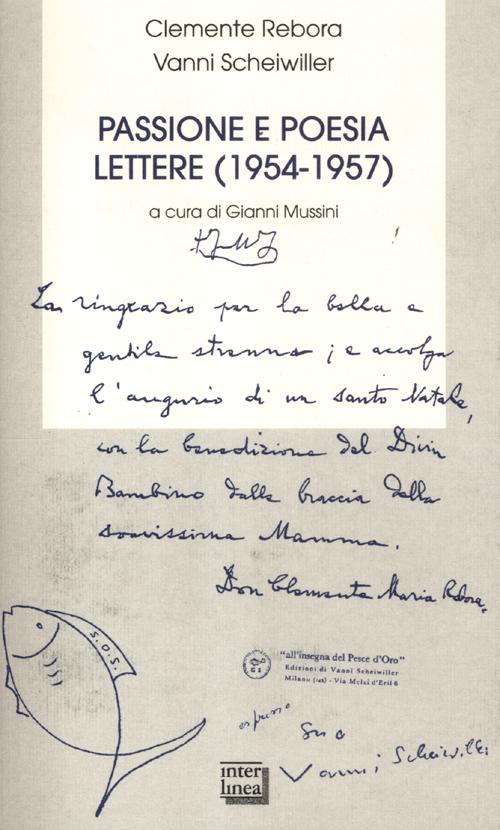 Clemente Rebora
Vanni Scheiwiller
PASSIONE E POESIA
LETTERE (1954-1957)
a cura di Gianni Mussini
La ringrazio per la bella e
gentile strenna; e accolga
l'augurio di un santo Natale,
con la benedizione del Divin
Bambino dalle braccia della
soavissima Mamma.
Don Clemente Maria Rebora.
S.O.S.
"all'insegna del Pesce d'Oro"
Edizioni di Vanni Scheiwiller
Milano - Via Melzi d'Eril 6
espresso
suo
Vanni Scheiwiller
inter
linea